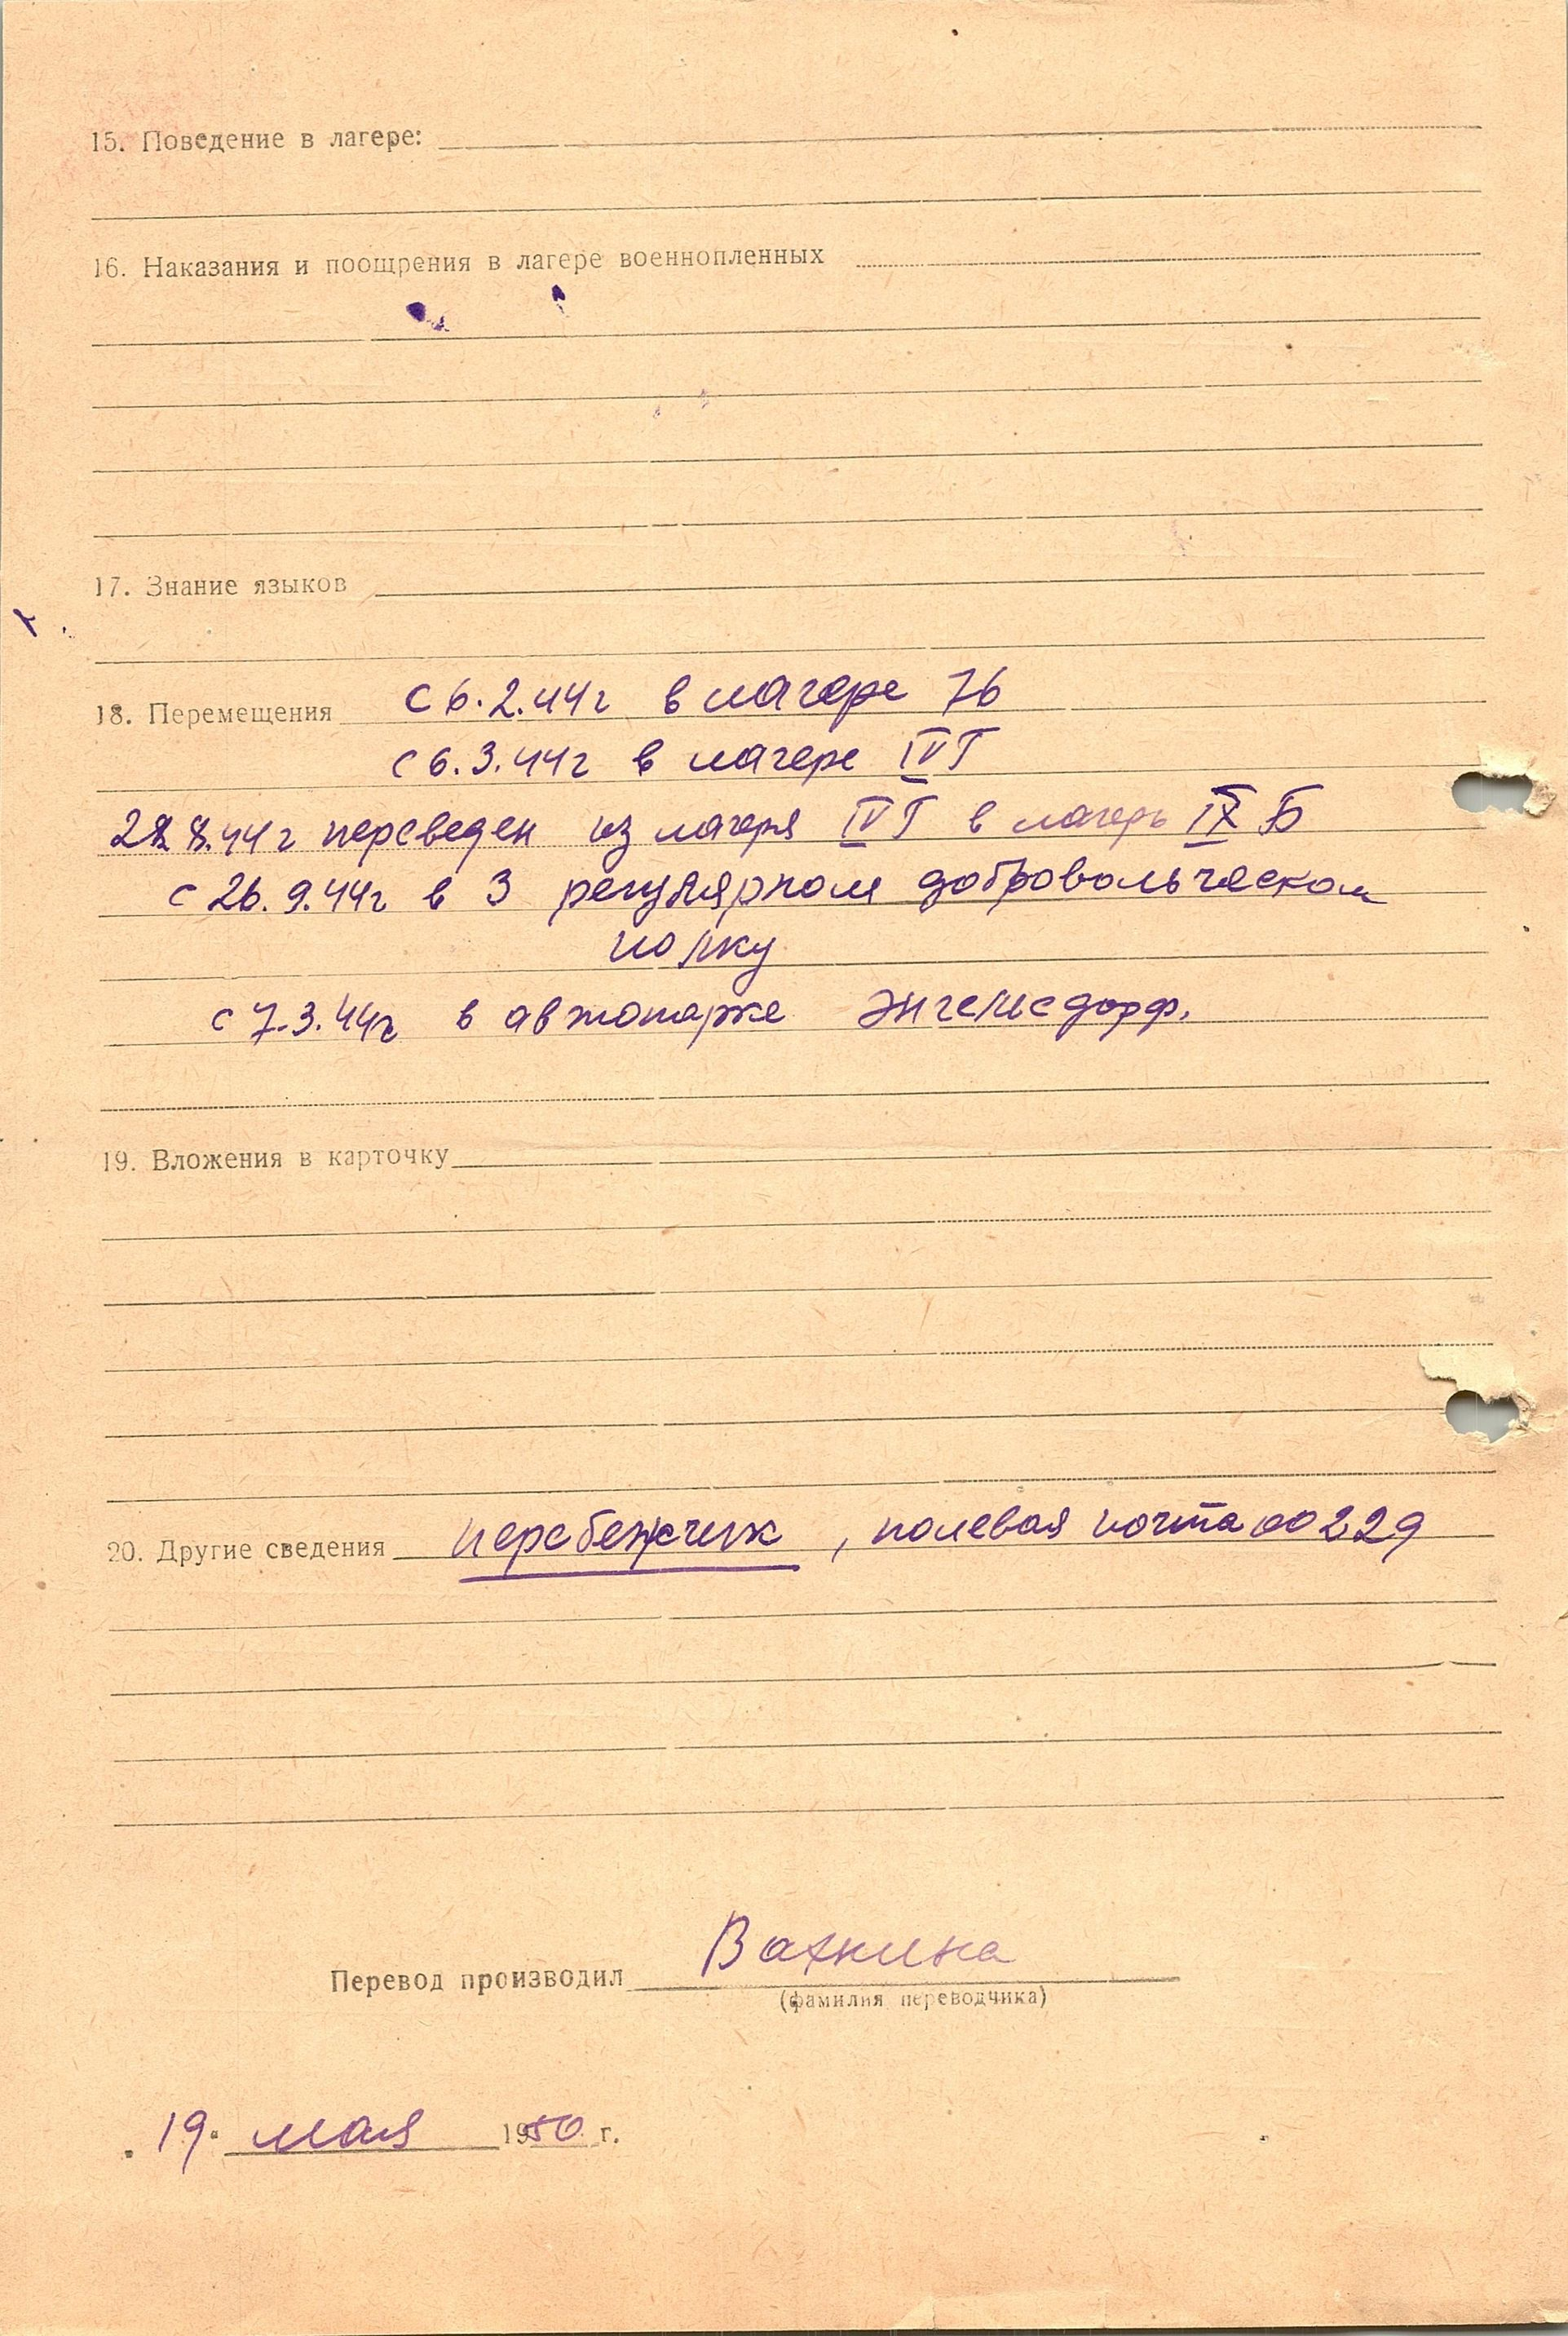 15. Поведение в лагере:
16. Наказания и поощрения в лагере военнопленных
17. Знание языков
18. Перемещения с 6.2.44г в лагере 76
с 6.3.44г в лагере IV Г
44г переведен из лагеря IV Г в лагерь IX Б
с 26.9.44г в 3 регулярном добровольческом
полку
с 7.3.44г в автопарке Энгельсдорф.
19. Вложения в карточку
20. Другие сведения перебежчик, полевая почта 00229
Перевод производил
(фамилия переводчика)
19 мая 1950 г.